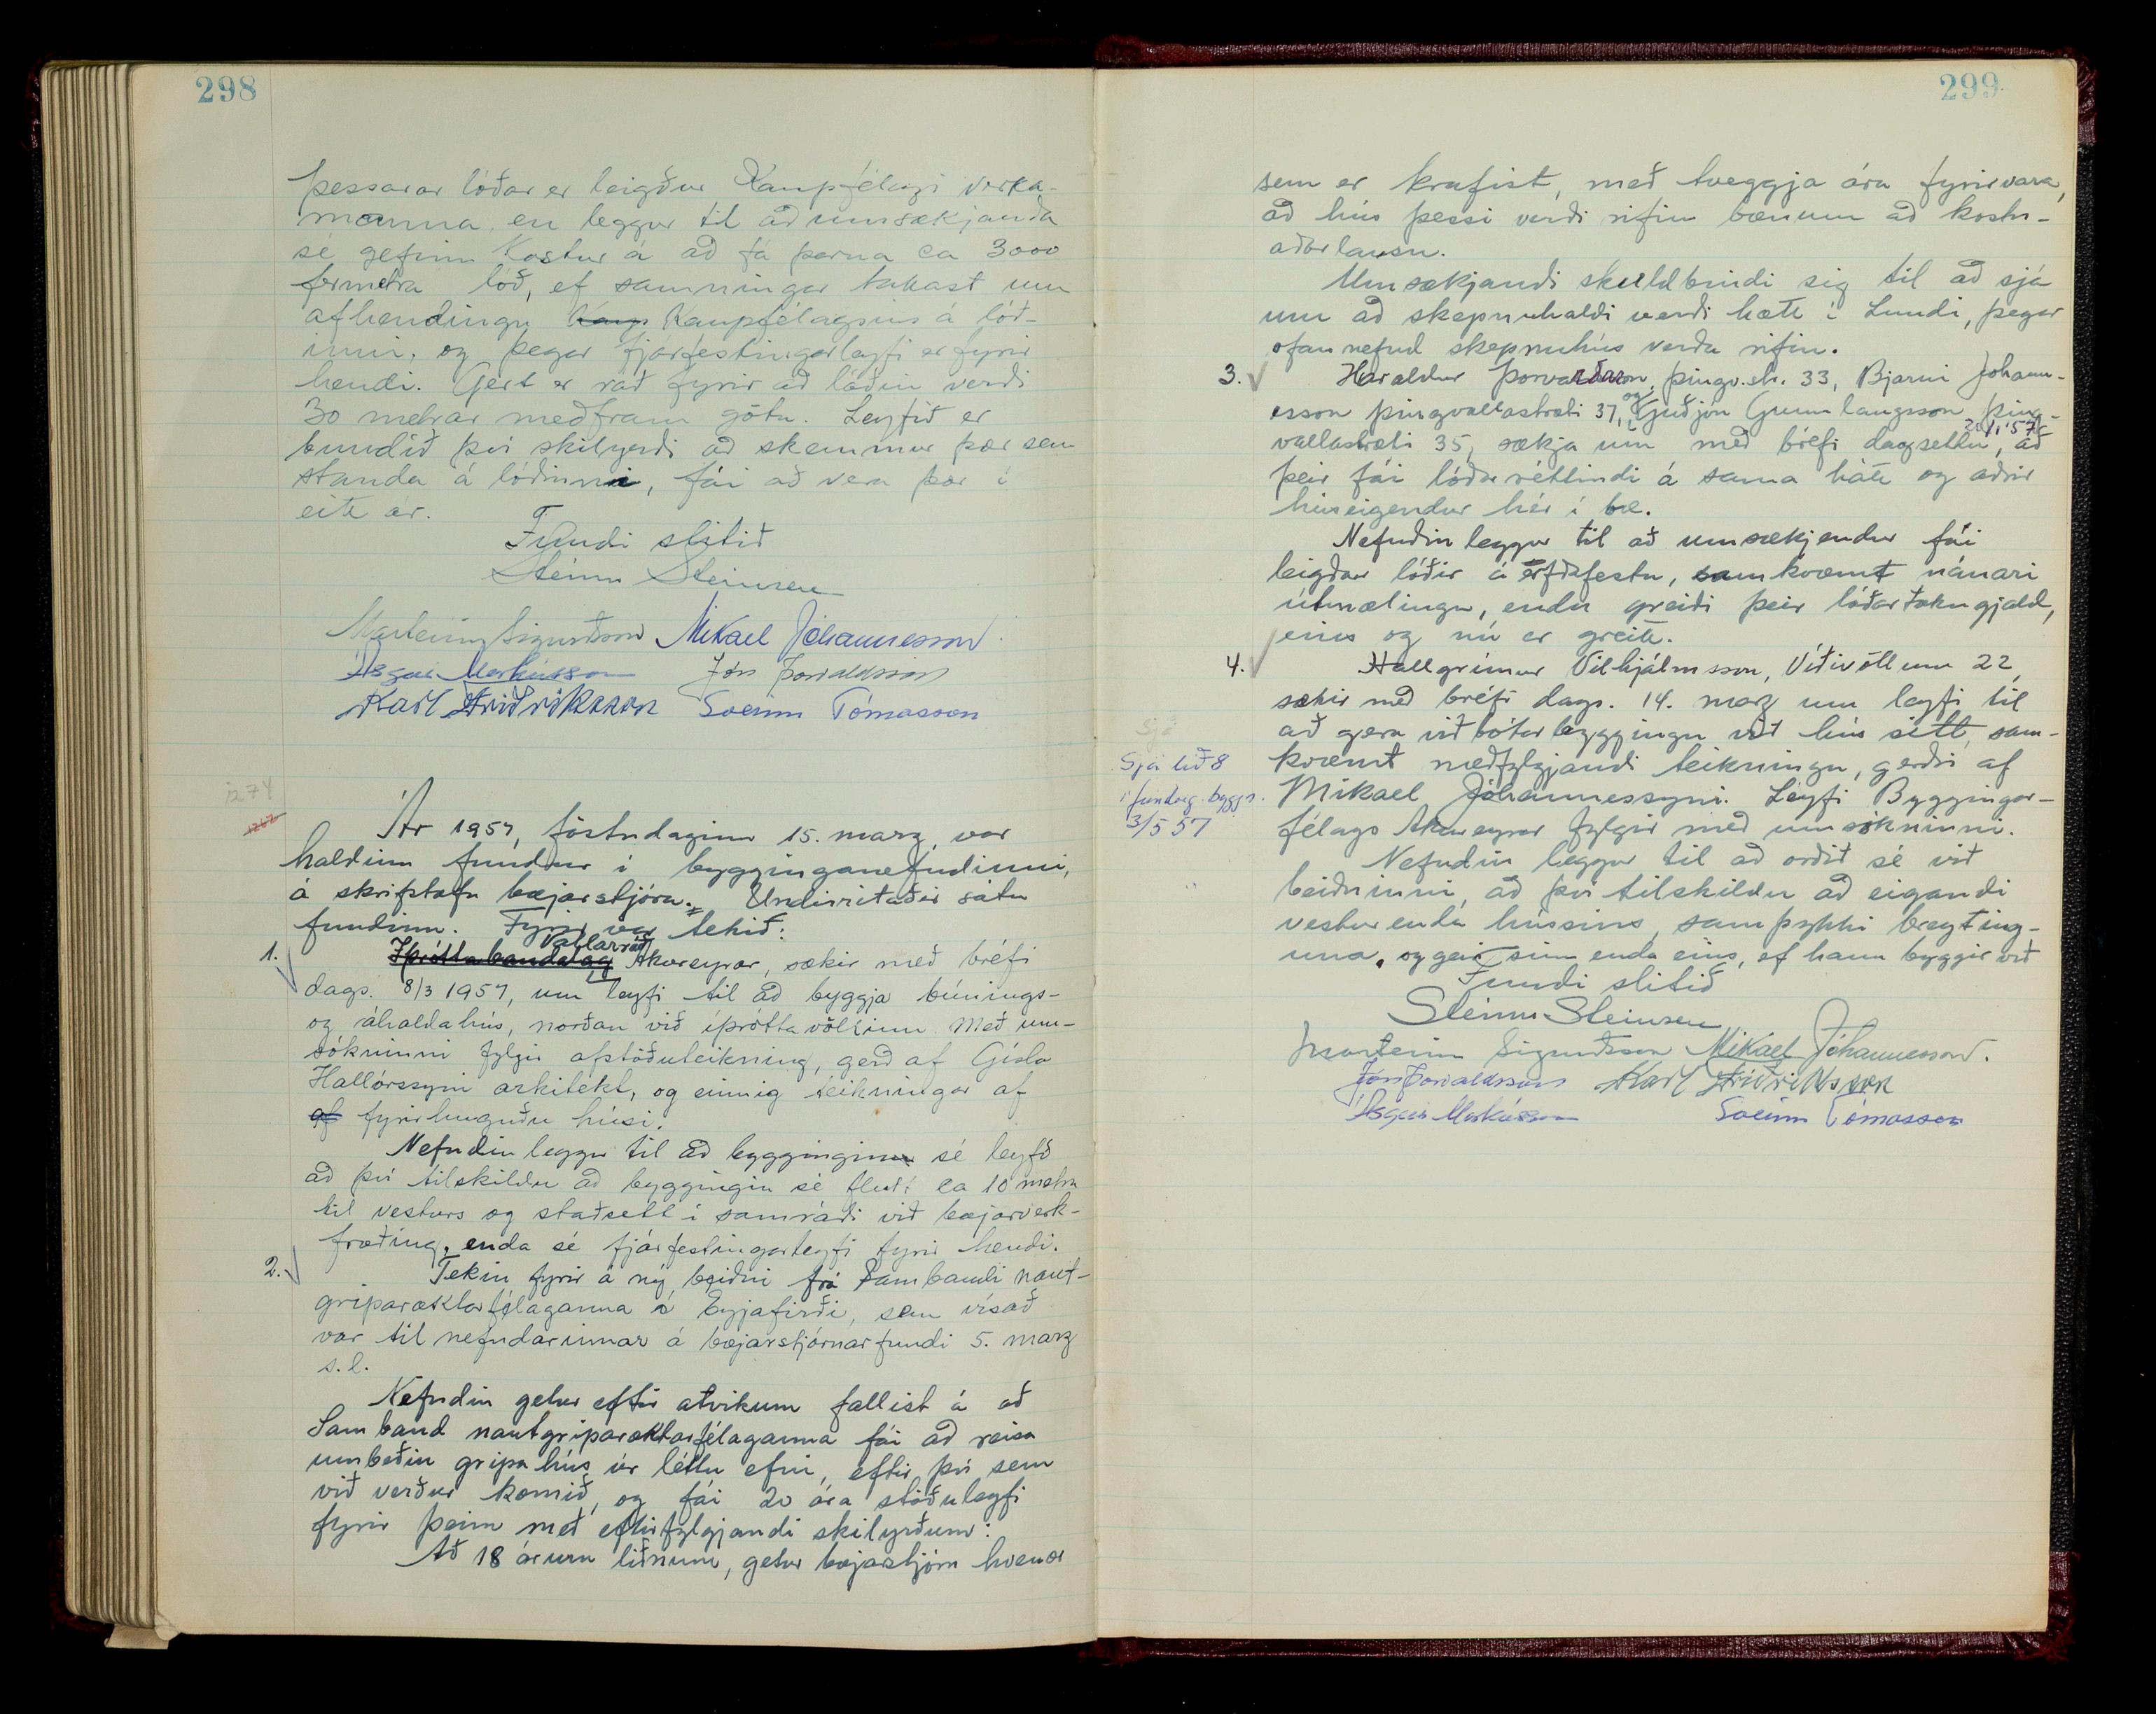 298
þessarar lóðar er leigður Kaupfélagi verka-
manna, en leggur til að umsækjanda
sé gefinn kostur á að fá þarna ca 3000
fermetra lóð, ef samningar takast um
afhendingu Kaup Kaupfélagsins á lóð-
inni, og þegar fjárfestingarleyfi er fyrir
hendi. Gert er ráð fyrir að lóðin verði
30 metrar meðfram götu. Leyfið er
bundið því skilyrði að skemmur þær sem
standa á lóðinni, fái að vera þar í
eitt ár.
Fundi slitið
Steinn Steinsen
Marteinn Sigurðsson Mikael Jóhannesson.
Ásgeir Markússon Jón Þorvaldsson
Karl Friðriksson Sveinn Tómasson
1274
1262
Ár 1957, föstudaginn 15. marz, var
haldinn fundur í bygginganefndinni,
á skrifstofu bæjarstjóra. Undirritaðir sátu
fundinn. Fyrir var tekið:
Vallarráð
1. Íþróttabandalag Akureyrar, sækir með bréfi
dags. 8/3 1957, um leyfi til að byggja búnings-
og áhaldahús, norðan við íþróttavöllinn. Með um-
sókninni fylgir afstöðuteikning, gerð af Gísla
Hallórssyni arkitekt, og einnig teikningar af
af fyrirhuguðu húsi.
Nefndin leggur til að byggingin sé leyfð
að því tilskildu að byggingin sé flutt ca 10 metra
til vesturs og staðsett í samráði við bæjarverk-
fræðing, enda sé fjárfestingarleyfi fyrir hendi.
2. Tekin fyrir á ný beiðni frá Sambandi naut-
griparæktarfélaganna í Eyjafirði, sem vísað
var til nefndarinnar á bæjarstjórnarfundi 5. marz
s.l.
Nefndin getur eftir atvikum fallist á að
Samband nautgriparæktarfélaganna fái að reisa
umbeðin gripahús úr léttu efni, eftir því sem
við verður komið, og fái 20 ára stöðuleyfi
fyrir þeim með eftirfylgjandi skilyrðum:
Að 18 árum liðnum, getur bæjarstjórn hvenær
299
sem er krafist, með tveggja ára fyrirvara,
að hús þessi verði rifin bænum að kostn-
aðarlausu.
Umsækjandi skuldbindi sig til að sjá
um að skepnuhaldi verði hætt í Lundi, þegar
ofannefnd skepnuhús verða rifin.
3. Haraldur Þorvaldsson, Þingv.str. 33, Bjarni Jóhann-
esson Þingvallastræti 37, og Guðjón Gunnlaugsson Þing-
vallastræti 35, sækja um með bréfi dagsettu, 20/1 '57 að
þeir fái lóðarréttindi á sama hátt og aðrir
húseigendur hér í bæ.
Nefndin leggur til að umsækjendur fái
leigðar lóðir á erfðafestu, samkvæmt nánari
útmælingu, enda greiði þeir lóðartökugjald,
eins og nú er greitt.
4. Hallgrímur Vilhjálmsson, Víðivöllum 22,
sækir með bréfi dags. 14. marz um leyfi til
að gera viðbótarbyggingu við hús sitt, sam-
kvæmt meðfylgjandi teikningu, gerðri af
Mikael Jóhannessyni. Leyfi Byggingar-
félags Akureyrar fylgir með umsókninni.
Sjá
Sjá lið 8
í fundarg. byggn.
3/5 57
Nefndin leggur til að orðið sé við
beiðninni, að því tilskildu að eigandi
vesturenda hússins, samþykki breyting-
una, og geri sinn enda eins, ef hann byggir við
Fundi slitið
Steinn Steinsen
Marteinn Sigurðsson Mikael Jóhannesson.
Jón Þorvaldsson Karl Friðriksson
Ásgeir Markússon Sveinn Tómasson